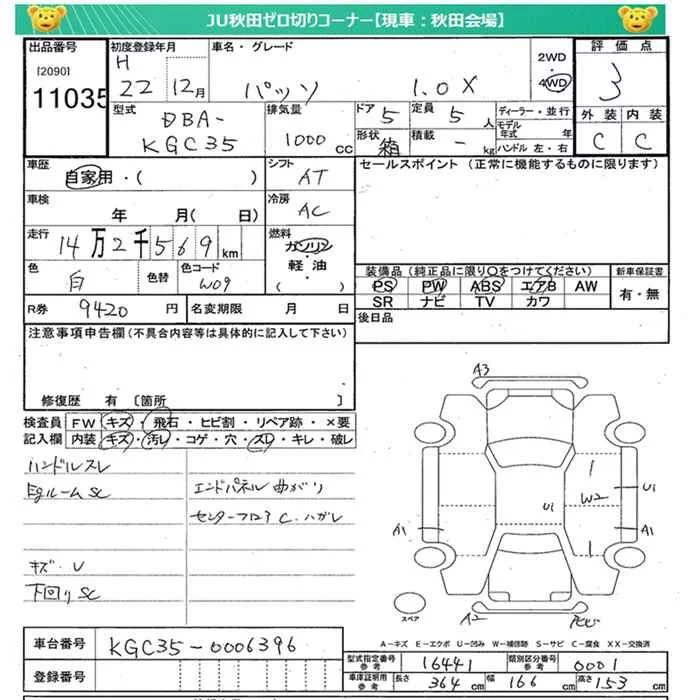 JU秋田ゼロ切りコーナー【現車：秋田会場】
出品番号 初度登録年月 車名・グレード 2WD 評価点
[2090] H 4WD
11035 22 12月 パッソ 1.0X 3
型式 排気量 ドア 定員 ディーラー・並行 外装 内装
DBA- 5 5人 モデル年式 年
KGC35 1000cc 形状 箱 積載 - kg ハンドル 左・右 C C
車歴 シフト セールスポイント（正常に機能するものに限ります）
自家用・( ) AT
車検 冷房
年 月( 日) AC
走行 燃料
14万2千569km ガソリン
色 色替 色コード 軽・油 装備品（純正品に限り○をつけてください） 新車保証書
白 W09 ( ) PS PW ABS エアB AW 有・無
R券 9420円 名変期限 月 日 SR ナビ TV カワ
後日品
注意事項申告欄(不具合内容等は具体的に記入して下さい)
修復歴 有 〔箇所 〕
検査員 FW キズ・飛石・ヒビ割・リペア跡・×要
記入欄 内装 キズ・汚レ・コゲ・穴・スレ・キレ・破レ
ハンドルスレ
Egルームsc エンドパネル曲がり
センターフロアC.ハガレ
キズ・U
下回りsc
A3
U1 W2 U1
A1 A1
スペア A2
A－キズ E－エクボ U－凹み W－補修跡 S－サビ C－腐食 XX－交換済
車台番号 KGC35-0006396
登録番号
型式指定番号参考 16441 類別区分番号参考 0001
車庫証明用参考 長さ 364cm 幅 166cm 高さ 153cm